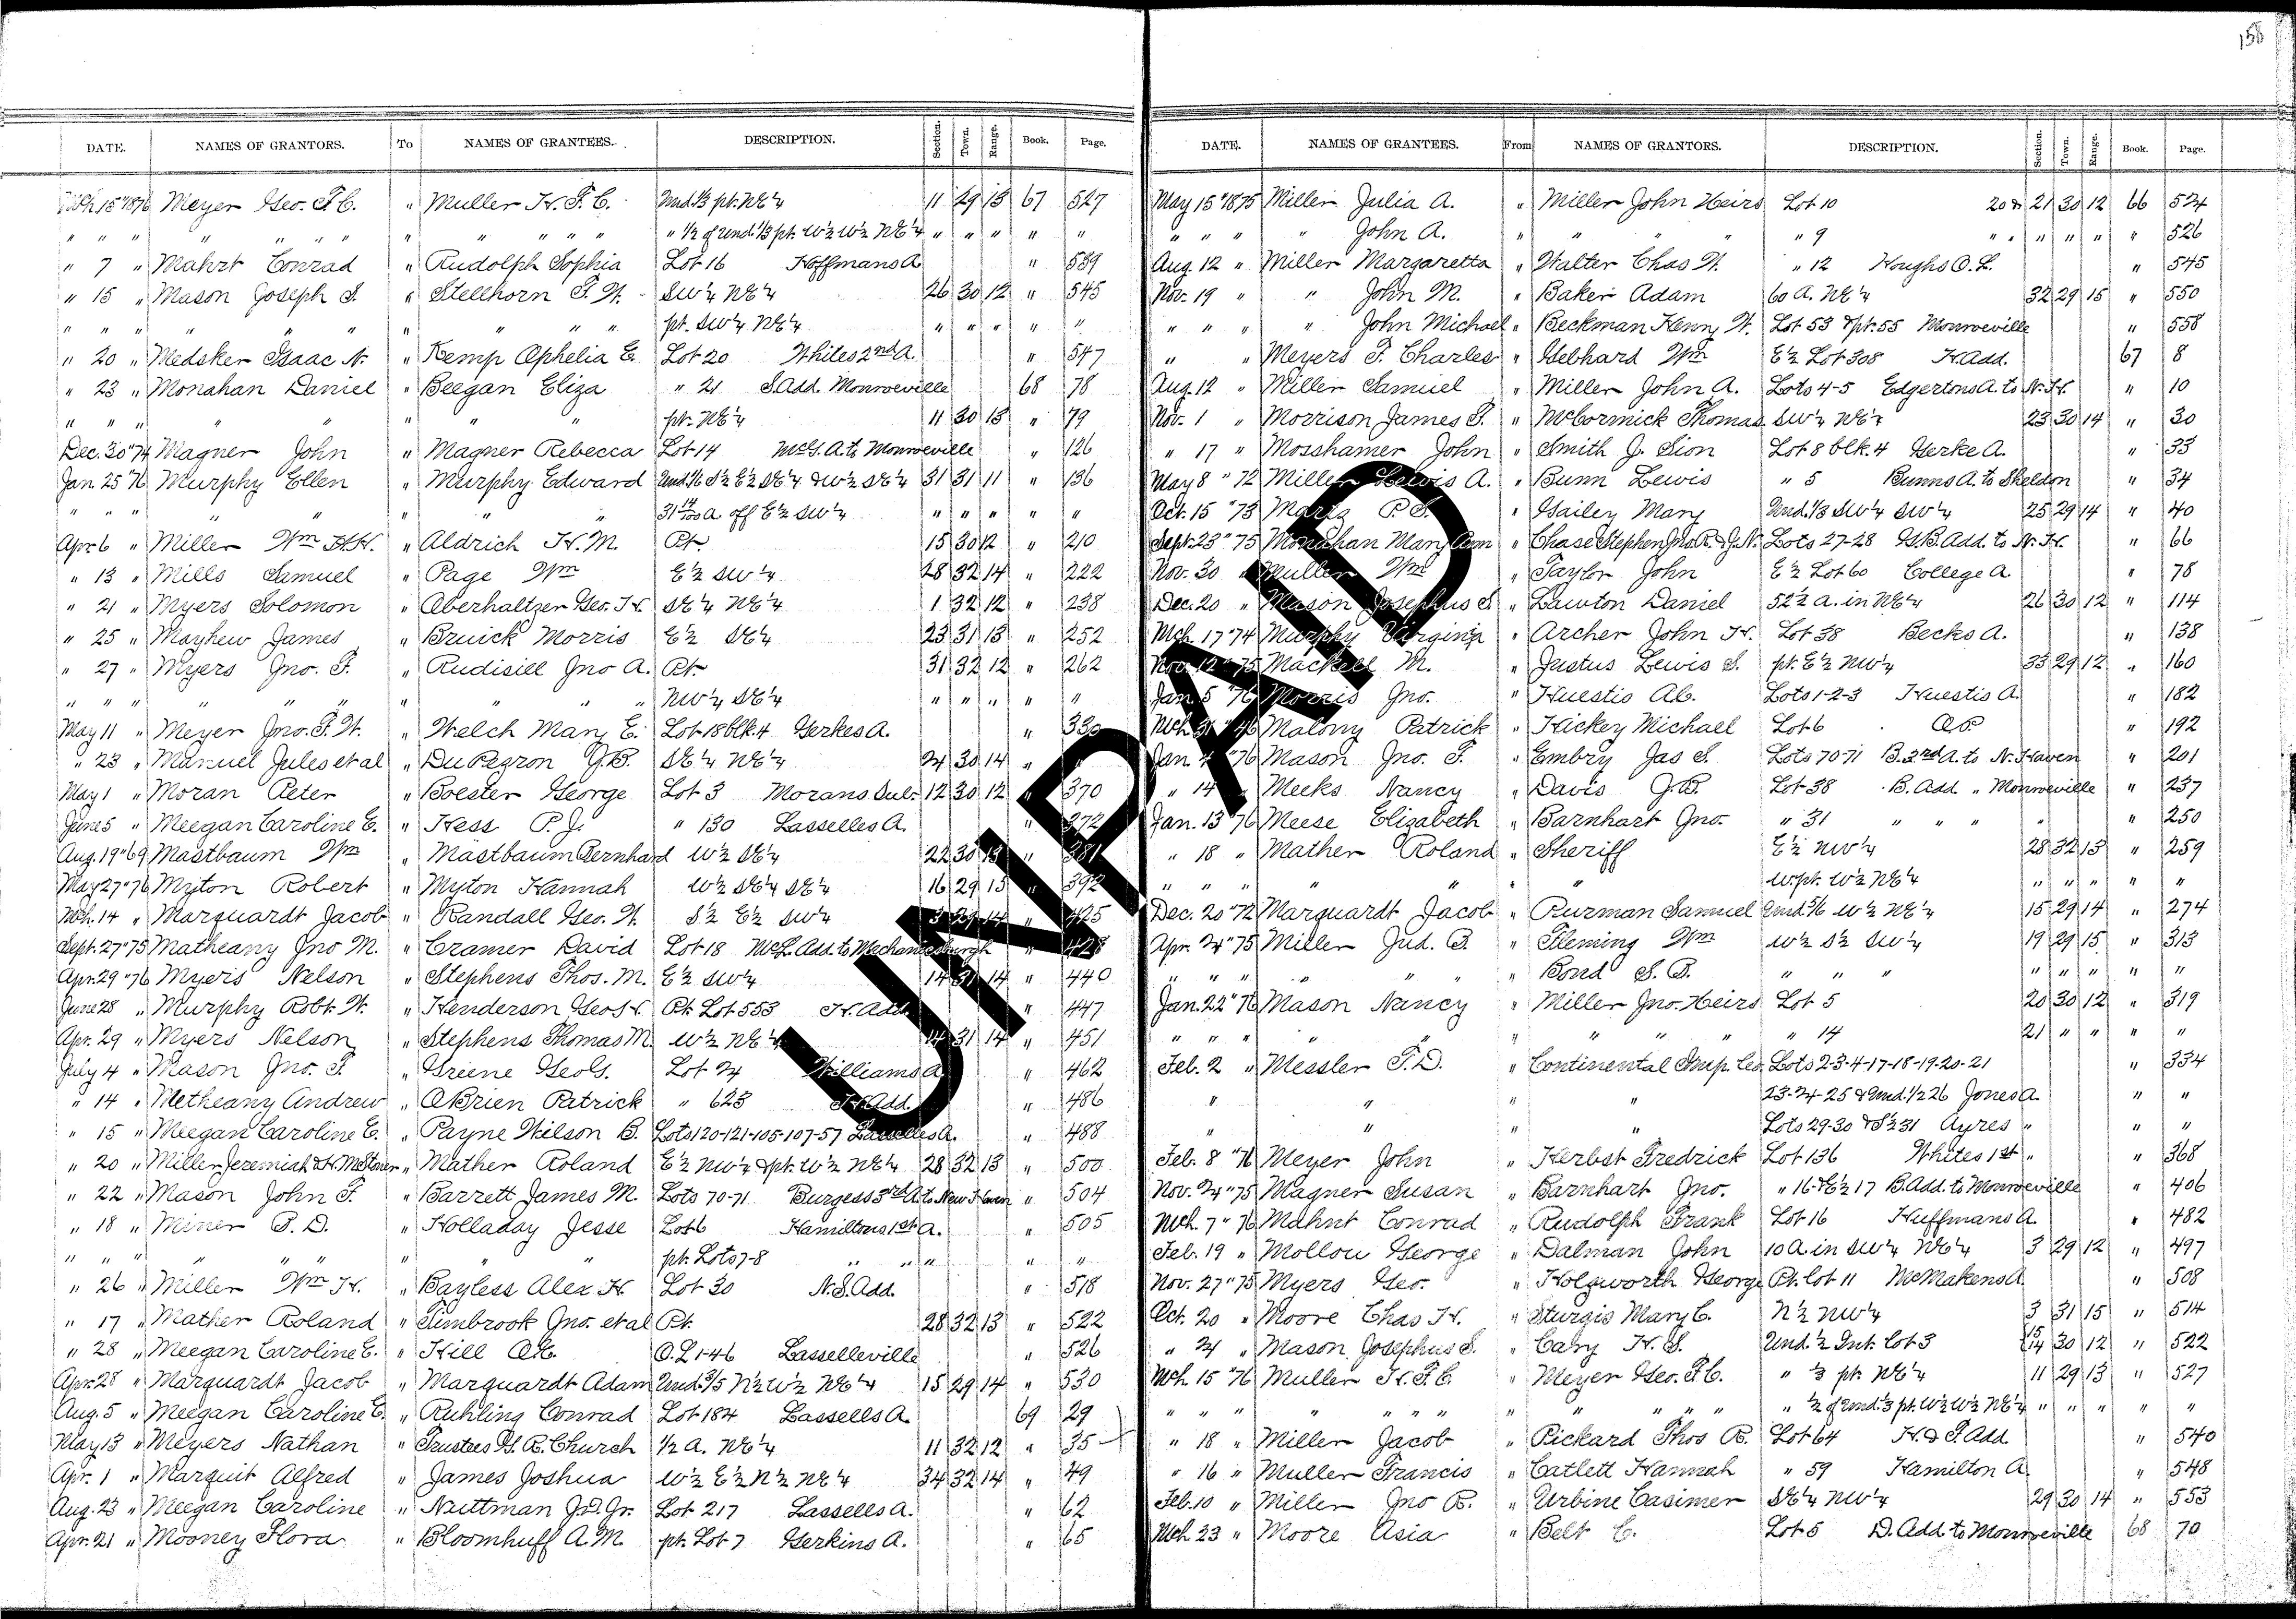 158
DATE. NAMES OF GRANTORS. To NAMES OF GRANTEES. DESCRIPTION. Section. Town. Range. Book. Page.
Mch 15 "1876 Meyer Geo. F. C. " Muller H. F. C. Und. 1/3 pt. NE 1/4 11 29 13 67 527
" " " " " " " " " " " " 1/2 of Und. 1/3 pt. W 1/2 W 1/2 NE 1/4 " " " " "
" 7 " Mahrt Conrad " Rudolph Sophia Lot 16 Hoffmans A. " 539
" 15 " Mason Joseph S. " Stellhorn F. W. SW 1/4 NE 1/4 26 30 12 " 545
" " " " " " " " " " pt. SW 1/4 NE 1/4 " " " " "
" 20 " Medsker Isaac N. " Kemp Ophelia E. Lot 20 Whites 2nd A. " 547
" 23 " Monahan Daniel " Beegan Eliza " 21 S. Add. Monroeville 68 78
" " " " " " " pt. NE 1/4 11 30 13 " 79
Dec. 30 "74 Magner John " Magner Rebecca Lot 14 McG. A. to Monroeville " 126
Jan 25 "76 Murphy Ellen " Murphy Edward Und. 1/6 S 1/2 E 1/2 SE 1/4 & W 1/2 SE 1/4 31 31 11 " 136
" " " " " " 31 14/100 A. off E 1/2 SW 1/4 " " " " "
Apr. 6 " Miller Wm H. H. " Aldrich H. M. Pt. 15 30 12 " 210
" 13 " Mills Samuel " Page Wm E 1/2 SW 1/4 28 32 14 " 222
" 21 " Myers Solomon " Aberhaltzer Geo. H. SE 1/4 NE 1/4 1 32 12 " 238
" 25 " Mayhew James " Bruick Morris E 1/2 SE 1/4 23 31 13 " 252
" 27 " Myers Jno. F. " Rudisill Jno A. Pt. 31 32 12 " 262
" " " " " " " " NW 1/4 SE 1/4 " " " " "
May 11 " Meyer Jno. F. W. " Welch Mary E. Lot 18 blk. 4 Gerkes A. " 330
" 23 " Manuel Jules et al " Du Pezron J. B. SE 1/4 NE 1/4 24 30 14 "
May 1 " Moran Peter " Boester George Lot 3 Morans Sub. 12 30 12 " 370
June 5 " Meegan Caroline E. " Hess P. J. " 130 Lasselles A. " 372
Aug. 19 "69 Mastbaum Wm " Mastbaum Bernhard W 1/2 SE 1/4 22 30 13 " 381
May 27 "76 Myton Robert " Myton Hannah W 1/2 SE 1/4 SE 1/4 16 29 15 " 392
Mch. 14 " Marquardt Jacob " Randall Geo. W. S 1/2 E 1/2 SW 1/4 3 29 14 " 425
Sept. 27 "75 Matheany Jno M. " Cramer David Lot 18 McL. Add. to Mechanicsburgh " 428
Apr. 29 "76 Myers Nelson " Stephens Thos. M. E 1/2 SW 1/4 14 31 14 " 440
June 28 " Murphy Robt. W. " Henderson Geo. H. Pt. Lot 553 H. Add. " 447
Apr. 29 " Myers Nelson " Stephens Thomas M. W 1/2 NE 1/4 14 31 14 " 451
July 4 " Mason Jno. F. " Greene Geo G. Lot 24 Williams A. " 462
" 14 " Metheany Andrew " O'Brien Patrick " 623 H. Add. " 486
" 15 " Meegan Caroline E. " Payne Wilson B. Lots 120-121-105-107-57 Lasselles A. " 488
" 20 " Miller Jeremiah & H. McStoner " Mather Roland E 1/2 NW 1/4 & pt. W 1/2 NE 1/4 28 32 13 " 500
" 22 " Mason John F. " Barrett James M. Lots 70-71 Burgess 3rd A. to New Haven " 504
" 18 " Miner B. D. " Holladay Jesse Lot 6 Hamiltons 1st A. " 505
" " " " " " " " pt. Lots 7-8 " " " " "
" 26 " Miller Wm H. " Bayless Alex H. Lot 30 N. S. Add. " 518
" 17 " Mather Roland " Timbrook Jno. et al Pt. 28 32 13 " 522
" 28 " Meegan Caroline E. " Hill O. E. O. L 1-46 Lasselleville " 526
Apr. 28 " Marquardt Jacob " Marquardt Adam Und. 3/5 N 1/2 W 1/2 NE 1/4 15 29 14 " 530
Aug. 5 " Meegan Caroline E. " Ruhling Conrad Lot 184 Lassells A. 69 29
May 13 " Meyers Nathan " Trustees G. R. Church 1/2 A. NE 1/4 11 32 12 " 35
Apr. 1 " Marquit Alfred " James Joshua W 1/2 E 1/2 N 1/2 NE 1/4 34 32 14 " 49
Aug. 23 " Meegan Caroline " Nuttman J. D. Jr. Lot 217 Lassells A. " 62
Apr. 21 " Mooney Flora " Bloomhuff A. M. pt. Lot 7 Gerkins A. " 65
DATE. NAMES OF GRANTEES. From NAMES OF GRANTORS. DESCRIPTION. Section. Town. Range. Book. Page.
May 15 "1875 Miller Julia A. " Miller John Heirs Lot 10 20 & 21 30 12 66 524
" " " " John A. " " " " " 9 " " " " " 526
Aug. 12 " Miller Margaretta " Walter Chas W. " 12 Houghs O. L. " 545
Nov. 19 " " John M. " Baker Adam 60 A. NE 1/4 32 29 15 " 550
" " " " John Michael " Beckman Henry W. Lot 53 & pt. 55 Monroeville " 558
" " Meyers F. Charles " Gebhard Wm E 1/2 Lot 308 H. Add. 67 8
Aug. 12 " Miller Samuel " Miller John A. Lots 4-5 Edgertons A. to N. H. " 10
Nov. 1 " Morrison James S. " McCormick Thomas SW 1/4 NE 1/4 23 30 14 " 30
" 17 " Mosshamer John " Smith J. Sion Lot 8 blk. 4 Gerke A. " 33
May 8 "72 Miller Lewis A. " Bunn Lewis " 5 Bunns A. to Sheldon " 34
Oct. 15 "73 P. S. " Gailey Mary Und. 1/3 SW 1/4 SW 1/4 25 29 14 " 40
Sept. 23 "75 Monahan Mary Ann " Chase Stephen Jno. R. & J. N. Lots 27-28 G. B. Add. to N. H. " 66
Nov. 30 " Muller Wm " Taylor John E 1/2 Lot 60 College A. " 78
Dec. 20 " Mason Josephus S. " Lawton Daniel 52 1/2 A. in NE 1/4 26 30 12 " 114
Mch. 17 "74 Murphy Virginia " Archer John H. Lot 38 Becks A. " 138
Nov. 12 "75 M. " Justus Lewis S. pt. E 1/2 NW 1/4 33 29 12 " 160
Jan. 5 "76 Morris Jno. " Huestis Ab. Lots 1-2-3 Huestis A. " 182
Mch. 31 "46 Malony Patrick " Hickey Michael Lot 6 O. P. " 192
Jan. 4 "76 Mason Jno. F. " Embry Jas S. Lots 70-71 B. 3rd A. to N. Haven " 201
" 14 " Meeks Nancy " Davis J. B. Lot 38 B. Add. " Monroeville " 237
Jan. 13 "76 Meese Elizabeth " Barnhart Jno. " 31 " " " " 250
" 18 " Mather Roland " Sheriff E 1/2 NW 1/4 28 32 13 " 259
" " " " " " W. pt. W 1/2 NE 1/4 " " " " "
Dec. 20 "72 Marquardt Jacob " Purman Samuel Und. 5/6 W 1/2 NE 1/4 15 29 14 " 274
Apr. 24 "75 Miller Jud. B. " Fleming Wm W 1/2 S 1/2 SW 1/4 19 29 15 " 313
" " " " " " Bond S. B. " " " " " " " "
Jan. 22 "76 Mason Nancy " Miller Jno. Heirs Lot 5 20 30 12 " 319
" " " " " " " " " 14 21 " " " "
Feb. 2 " Messler T. D. " Continental Imp. Co. Lots 2-3-4-17-18-19-20-21 " 334
" " " " 23-24-25 & Und. 1/2 26 Jones A. " "
" " " " Lots 29-30 & S 1/2 31 Ayres " " "
Feb. 8 "76 Meyer John " Herbst Fredrick Lot 136 Whites 1st " " 368
Nov. 24 "75 Magner Susan " Barnhart Jno. " 16 & E 1/2 17 B. Add. to Monroeville " 406
Mch. 7 "76 Mahnt Conrad " Rudolph Frank Lot 16 Huffmans A. " 482
Feb. 19 " Mollow George " Dalman John 10 A in SW 1/4 NE 1/4 3 29 12 " 497
Nov. 27 "75 Myers Geo. " Holzworth George Pt. lot 11 McMakens A. " 508
Oct. 20 " Moore Chas H. " Sturgis Mary C. N 1/2 NW 1/4 3 31 15 " 514
" 24 " Mason Josephus S. " Cary H. S. Und. 1/2 Int. Lot 3 15 14 30 12 " 522
Mch 15 "76 Muller H. F. C. " Meyer Geo. F. C. " 1/3 pt. NE 1/4 11 29 13 " 527
" " " " " " " " " " " 1/2 of Und. 1/3 pt. W 1/2 W 1/2 NE 1/4 " " " " "
" 18 " Miller Jacob " Pickard Thos R. Lot 64 H. & F. Add. " 540
" 16 " Muller Francis " Catlett Hannah " 59 Hamilton A. " 548
Feb. 10 " Miller Jno B. " Urbine Casimer SE 1/4 NW 1/4 29 30 14 " 553
Mch 23 " Moore Asia " Belt C. Lot 5 D. Add. to Monroeville 68 70